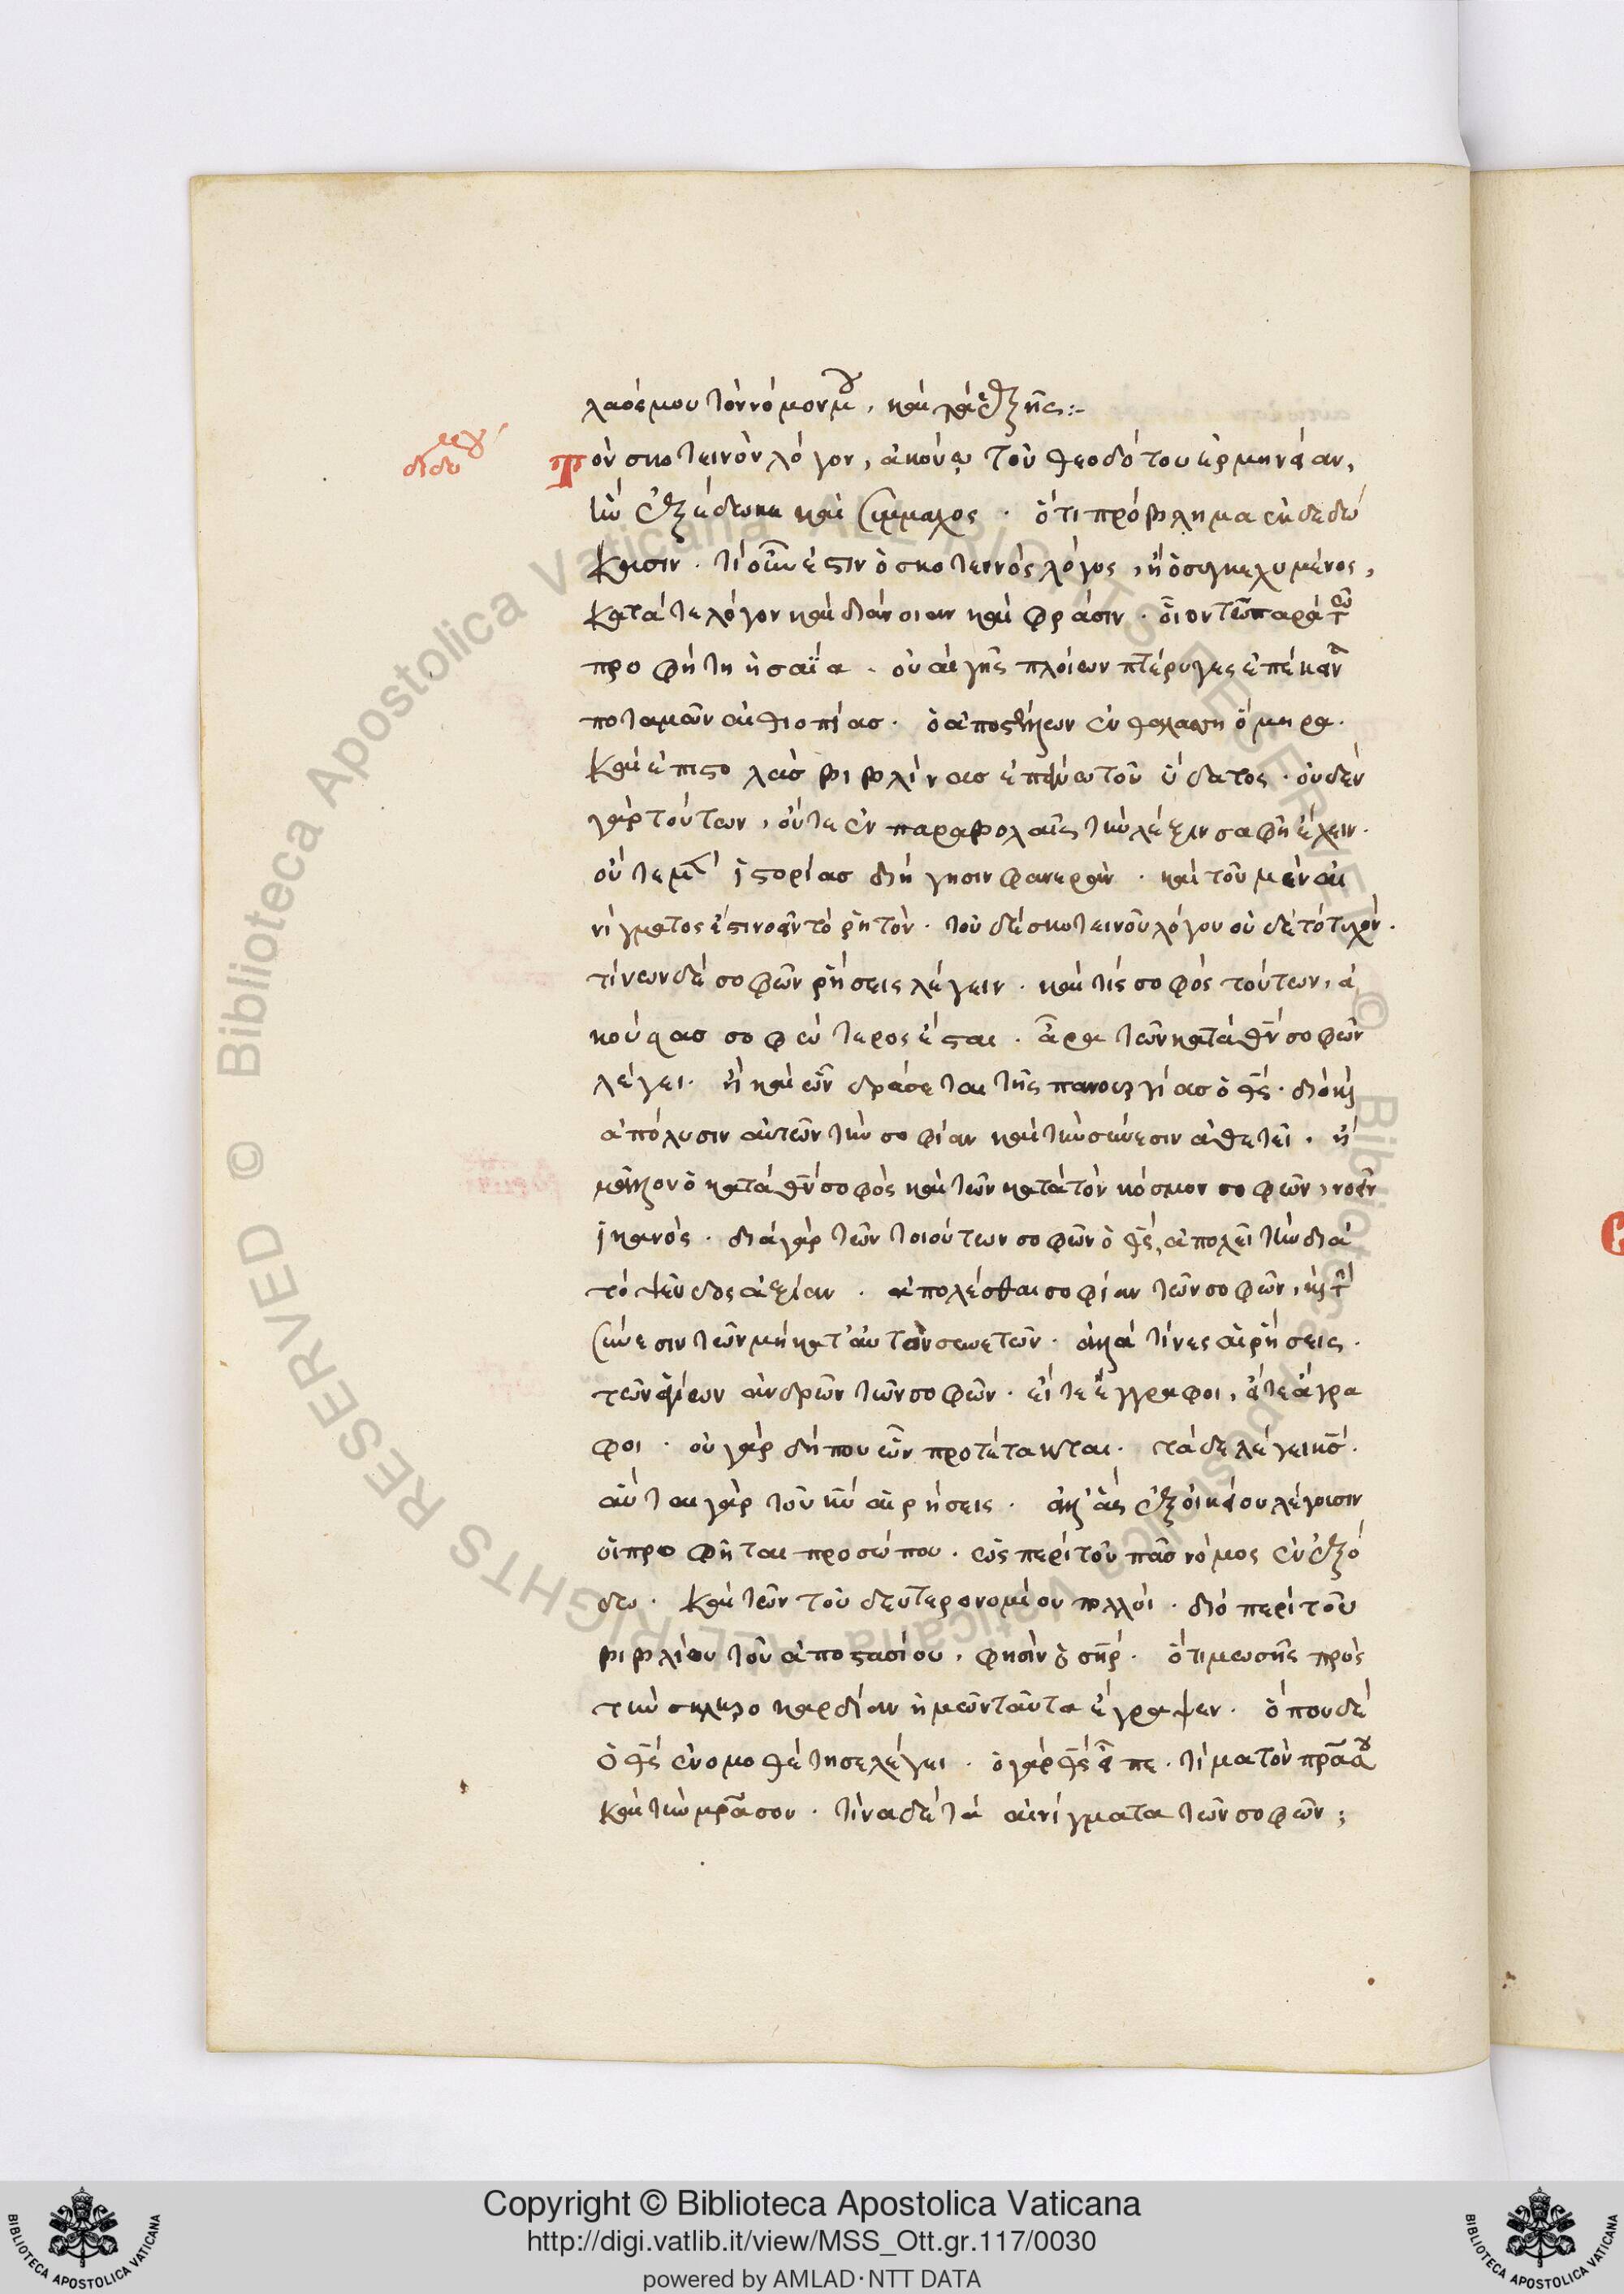 λαός μου τὸν νόμον μου, καὶ τὰ ἑξῆς:-
διδυ
Τὸν σκοτεινὸν λόγον, ἀκούω τοῦ θεοδότου ἑρμηνείαν,
ἣν ἐξέδωκε καὶ σύμμαχος · ὅτι πρόβλημα ἐκδεδώ
κασιν · τί οὖν ἐστιν ὁ σκοτεινὸς λόγος, ἢ ὁ συγκεχυμένος,
κατά τε λόγον καὶ διάνοιαν καὶ φράσιν · οἷον τῶν παρὰ τῶ
προφήτη ἡσαΐα · οὐαὶ γῆς πλοίων πτέρυγες ἐπέκεινα
ποταμῶν αἰθιοπίας · ὁ ἀποστέλλων ἐν θαλάσση ὅμηρα ·
καὶ ἐπιστολὰς βιβλίνας ἐπάνω τοῦ ὕδατος · οὐδὲν
γὰρ τούτων, οὔτε ἐν παραβολαῖς τὴν λέξιν σαφῆ ἔχειν ·
οὔτε μετὰ ἱστορίας διήγησιν φανεράν · καὶ τοῦ μὲν αἰ
νίγματος ἔστι νοεῖν τὸ ῥητόν · τοῦ δὲ σκοτεινοῦ λόγου οὐδὲ τὸ τυχόν ·
τίνων δὲ σοφῶν ῥήσεις λέγειν · καὶ τίς σοφὸς τούτων, ἀ
κούσας σοφώτερος ἔσται · ἆρα τῶν κατὰ θν σοφῶν
λέγει · ἢ καὶ ὧν δράσεται τῆς πανουργίας ὁ θς · διὸ καὶ
ἀπόλυσιν αὐτῶν τὴν σοφίαν καὶ τὴν σύνεσιν ἀθετεῖ · ἢ
μᾶλλον ὁ κατὰ θν σοφὸς καὶ τῶν κατὰ τὸν κόσμον σοφῶν, νοεῖν
ἱκανός · διὰ γὰρ τῶν τοιούτων σοφῶν ὁ θς, ἀπολεῖ τὴν διὰ
τὸ ψεῦδος ἀξίαν · ἀπολέσθαι σοφίαν τῶν σοφῶν, καὶ τὴν
σύνεσιν τῶν μὴ κατ' αὐτὸν συνετῶν · ἀλλὰ τίνες αἱ ῥήσεις ·
τῶν ἁγίων ἀνδρῶν τῶν σοφῶν · εἴτε ἔγγραφοι, εἴτε ἄγρα
φοι · οὐ γὰρ δήπου ὧν προτέτακται · τάδε λέγει κς ·
αὗται γὰρ τοῦ κυ αἱ ῥήσεις · ἀλλ' ἃς ἐξ οἰκείου λέγουσιν
οἱ προφῆται προσώπου · ὡς περὶ τοῦ πᾶς νόμος ἐν ἐξό
δω · καὶ τῶν τοῦ δευτερονομίου πολλοί · διὸ περὶ τοῦ
βιβλίου τοῦ ἀποστασίου, φησὶν ὁ σηρ · ὅτι μωσῆς πρὸς
τὴν σκληροκαρδίαν ἡμῶν ταῦτα ἔγραψεν · ὅπου δὲ
ὁ θς ἐνομοθέτησε λέγει · ὁ γὰρ θς εἶπε · τίμα τὸν πρα σου
καὶ τὴν μρα σου · τίνα δὲ τὰ αἰνίγματα τῶν σοφῶν;
Copyright © Biblioteca Apostolica Vaticana
http://digi.vatlib.it/view/MSS_Ott.gr.117/0030
powered by AMLAD·NTT DATA